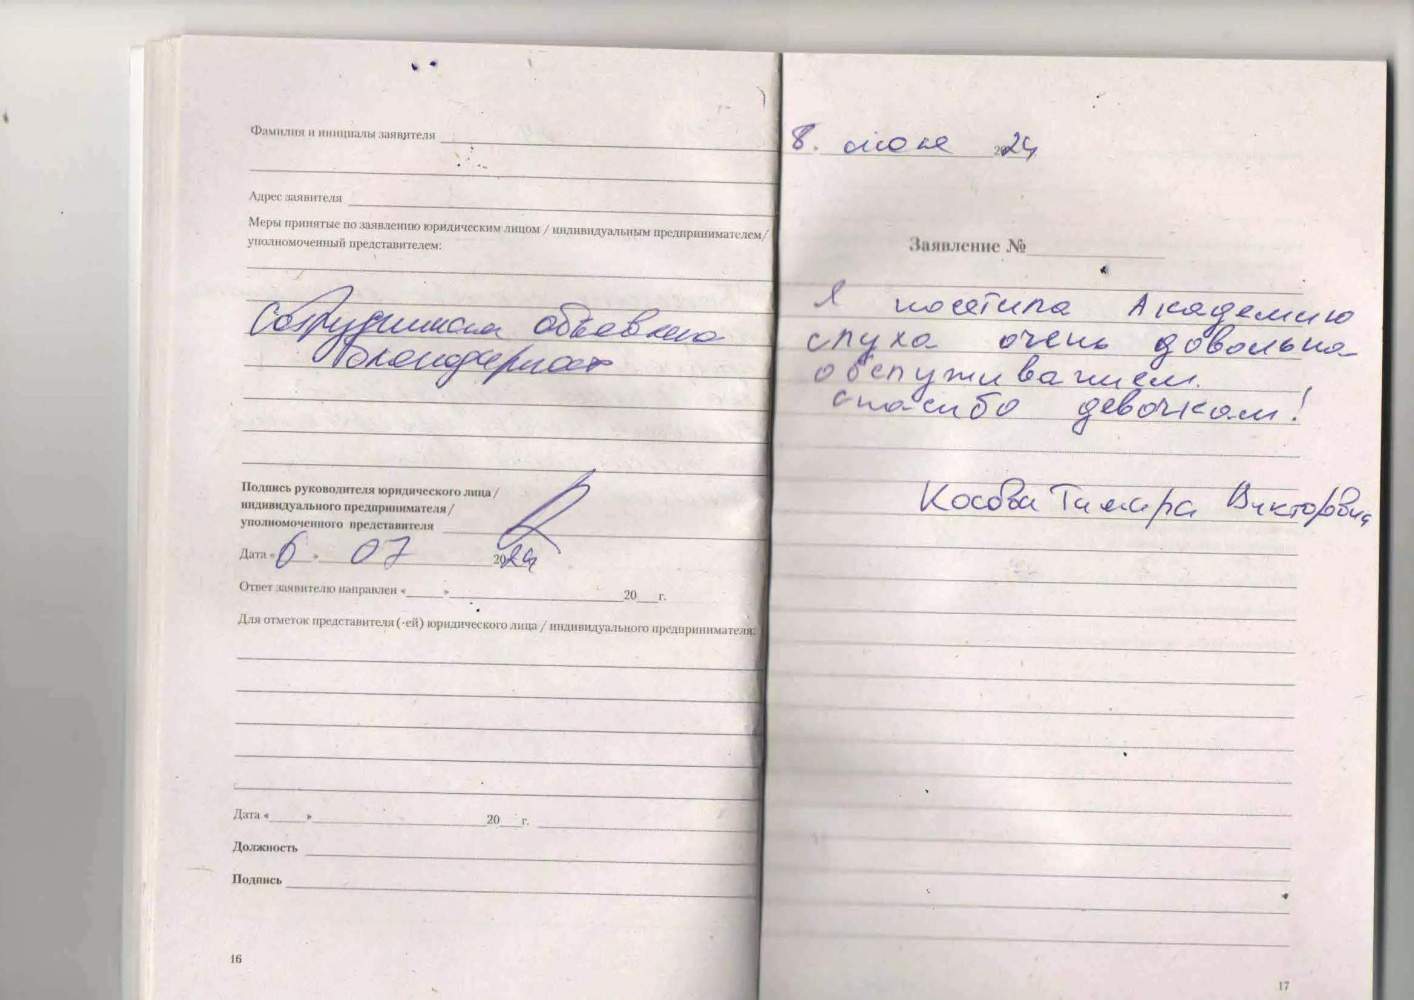 Фамилия и инициалы заявителя
Адрес заявителя
Меры принятые по заявлению юридическим лицом / индивидуальным предпринимателем/
уполномоченный представителем:
Сотрудникам объявлена
благодарност
Подпись руководителя юридического лица/
индивидуального предпринимателя/
уполномоченного представителя
Дата «6» 07 2024
Ответ заявителю направлен «____»____20__г.
Для отметок представителя (-ей) юридического лица / индивидуального предпринимателя:
Дата «____»____20__г.
Должность
Подпись
16
8. 2024
Заявление №
Я посетила Академию
слуха очень довольна
обслуживанием.
спасибо девочкам!
Викторовна
17